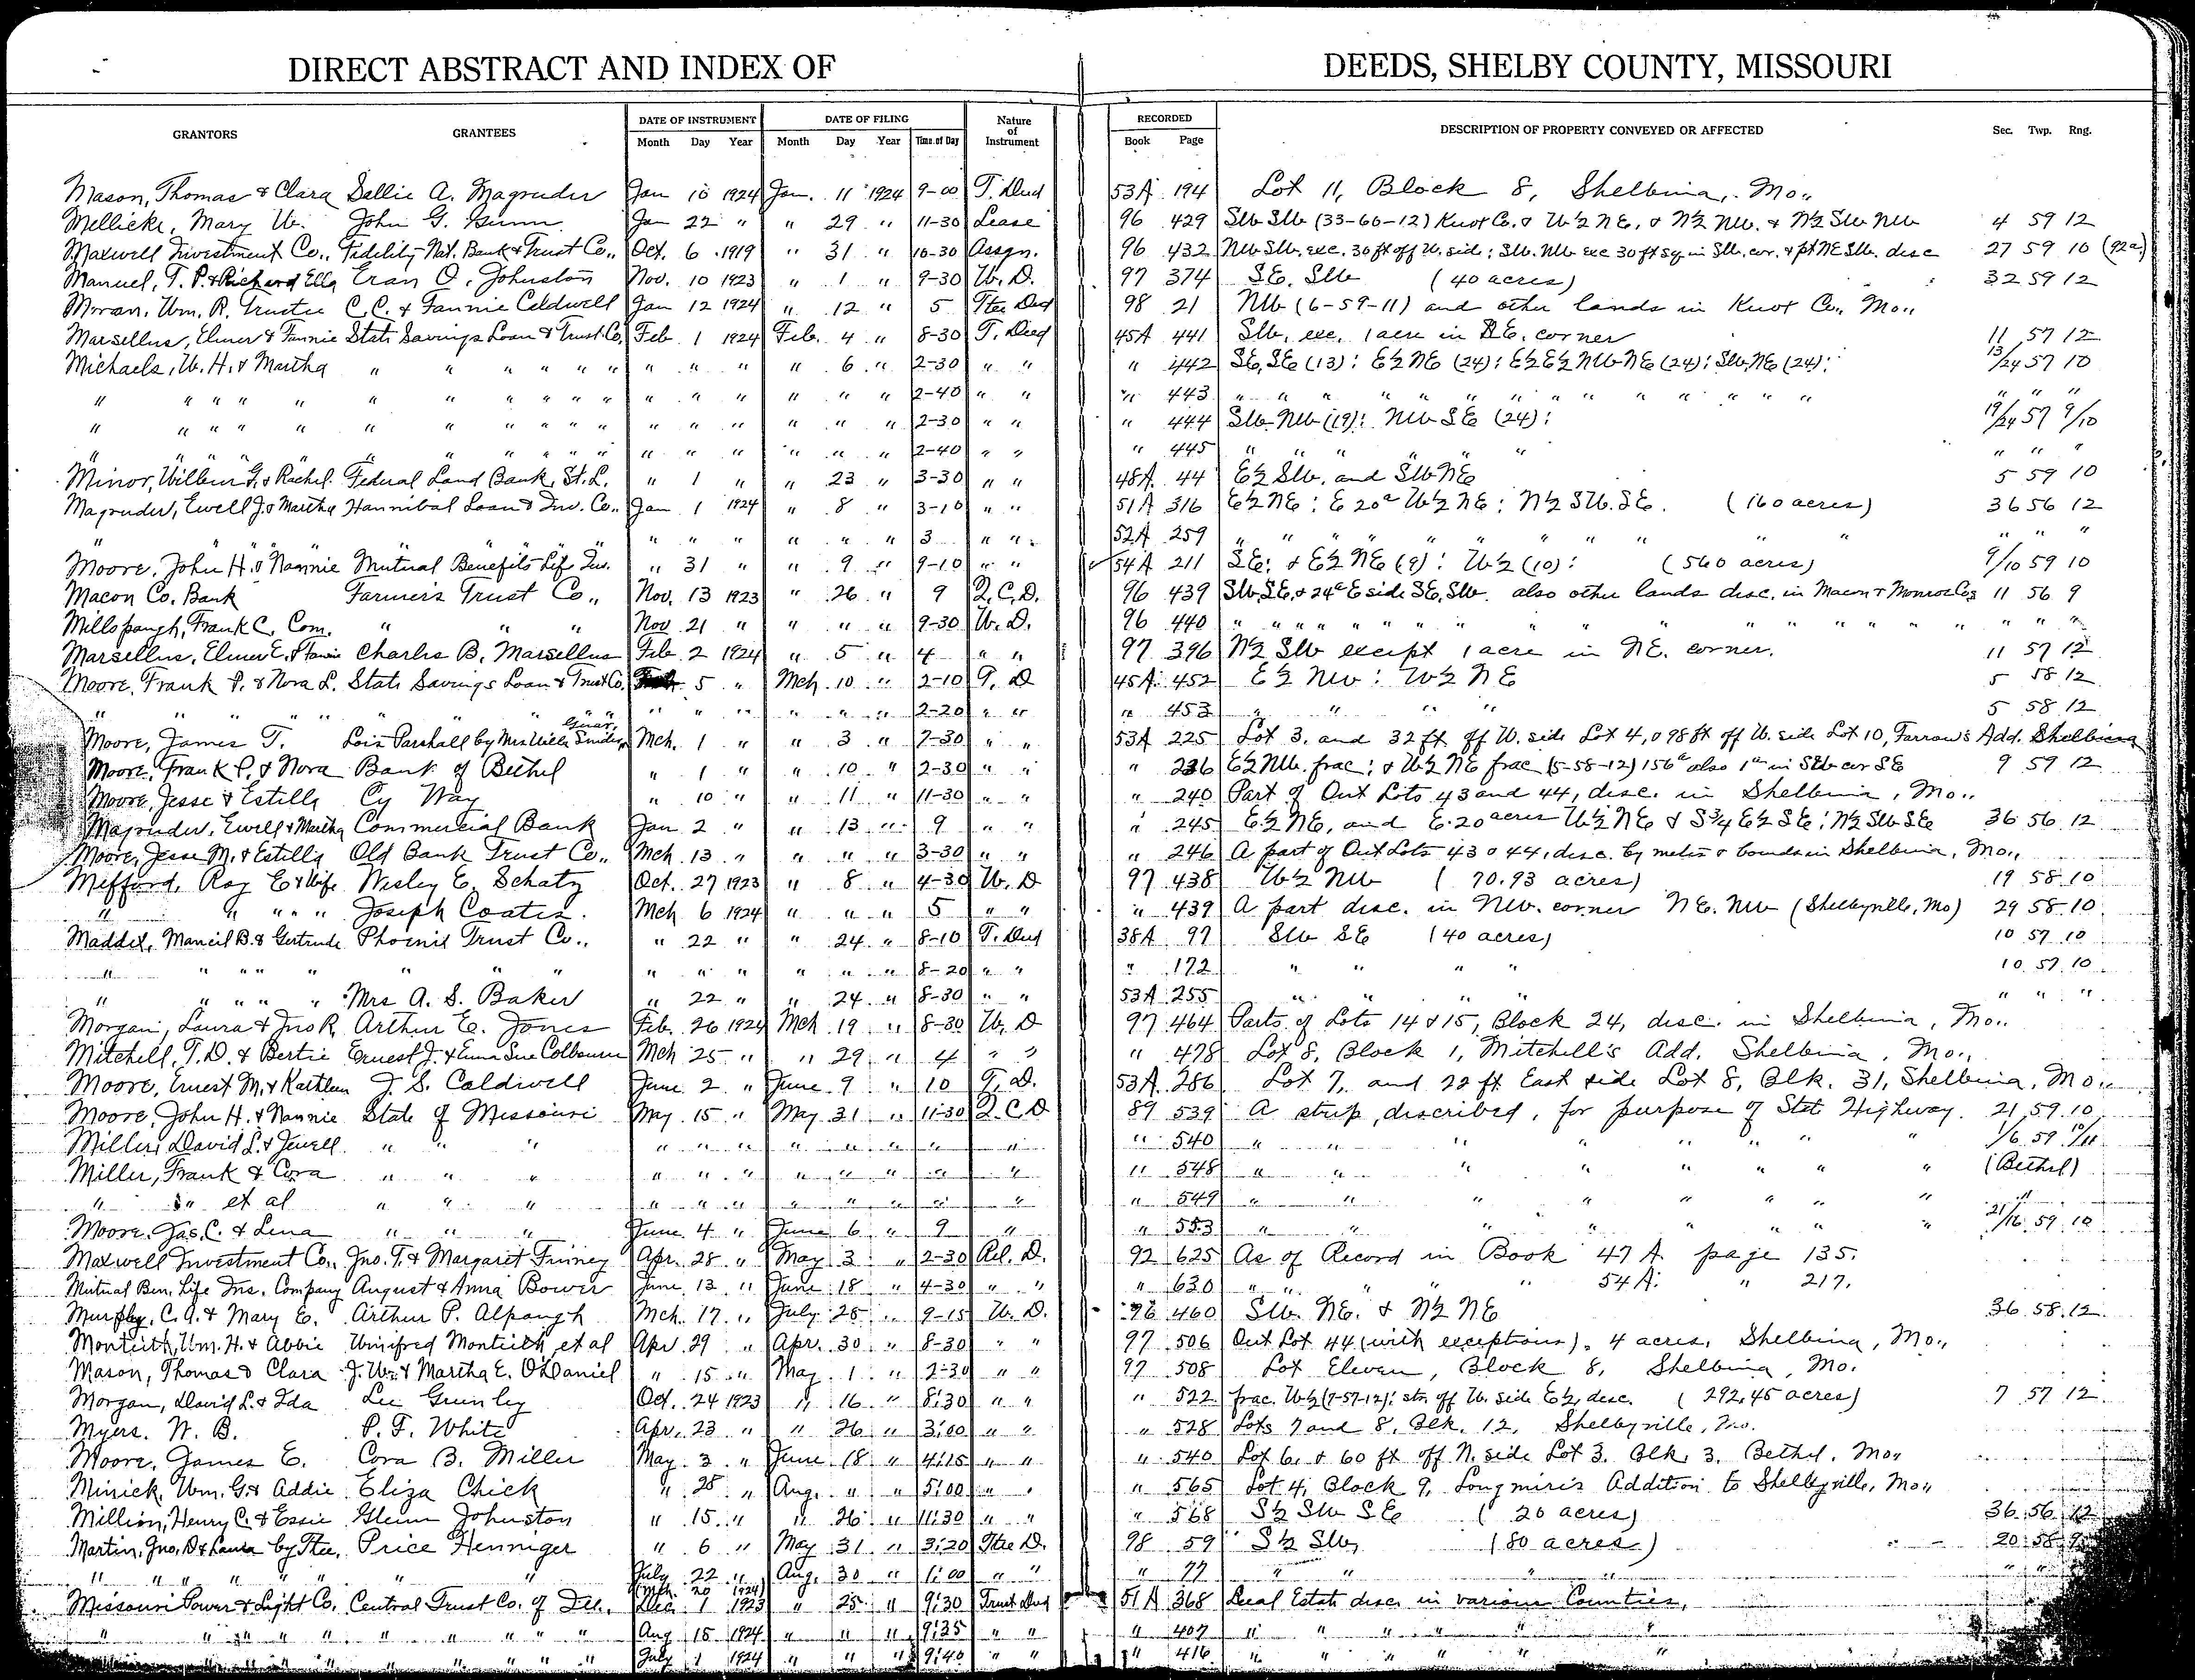 DIRECT ABSTRACT AND INDEX OF DEEDS, SHELBY COUNTY, MISSOURI
GRANTORS GRANTEES DATE OF INSTRUMENT DATE OF FILING Nature of Instrument RECORDED DESCRIPTION OF PROPERTY CONVEYED OR AFFECTED Sec. Twp. Rng.
Month Day Year Month Day Year Time of Day Book Page
Mason, Thomas & Clara Sallie A. Magruder Jan 10 1924 Jan. 11 1924 9-00 T. Deed 53A 194 Lot 11, Block 8, Shelbina, Mo.,
Mellicke, Mary W. John G. Gunn Jan 22 " " 29 " 11-30 Lease 96 429 SW SW (33-60-12) Knox Co. & W½ NE, & N½ NW. & N½ SW NW 4 59 12
Maxwell Investment Co., Fidelity Nat. Bank & Trust Co., Oct. 6 1919 " 31 " 10-30 Assgn. 96 432 NW SW. exc. 30 ft off W. side; SW. NW exc 30 ft sq in SW. cor. & pt NE SW. desc 27 59 10 (92a)
Manuel, T. P. & Richard Ella Eran O. Johnston Nov. 10 1923 " 1 " 9-30 W. D. 97 374 SE. SW (40 acres) 32 59 12
Moran, Wm. R. Trustee C.C. & Fannie Caldwell Jan 12 1924 " 12 " 5 Ttee Deed 98 21 NW (6-59-11) and other lands in Knox Co., Mo.,
Marsellus, Elmer & Fannie State Savings Loan & Trust Co. Feb. 1 1924 Feb. 4 " 8-30 T. Deed 45A 441 SW. exc. 1 acre in NE. corner 11 57 12
Michaels, W. H. & Martha " " " " " " " " " " 6 " 2-30 " " " 442 SE. SE (13): E½ NE (24): E½ E½ NW NE (24): SW. NE (24): 13/24 57 10
" " " " " " " " " " " " " " " " " 2-40 " " " 443 " " " " " " " " " " " " " "
" " " " " " " " " " " " " " " " " 2-30 " " " 444 SW NW (19): NW SE (24): 19/24 57 9/10
" " " " " " " " " " " " " " " " " 2-40 " " " 445 " " " " " " "
Minor, Wilbur G. & Rachel Federal Land Bank, St. L. " 1 " " 23 " 3-30 " " 48A 44 E½ SW. and SW NE 5 59 10
Magruder, Ewell J. & Martha Hannibal Loan & Inv. Co., Jan 1 1924 " 8 " 3-10 " " 51A 316 E½ NE: E 20a W½ NE: N½ SW. SE. (160 acres) 36 56 12
" " " " " " " " " " " " " 3 " " 52A 259 " " " " " " " " " " "
Moore, John H. & Nannie Mutual Benefit Life Ins. " 31 " " 9 " 9-10 " " 54A 211 SE: & E½ NE (9): W½ (10): (560 acres) 9/10 59 10
Macon Co. Bank Farmers Trust Co., Nov. 13 1923 " 26 " 9 Q.C.D. 96 439 SW. SE, & 24a E side SE, SW. also other lands desc. in Macon & Monroe Cos 11 56 9
Millspaugh, Frank C. Com. " " " Nov 21 " " " " 9-30 W. D. 96 440 " " " " " " " " " " " " " "
Marsellus, Elmer E. & Fannie Charles B. Marsellus Feb. 2 1924 " 5 " 4 " " 97 396 N½ SW except 1 acre in NE. corner. 11 57 12
Moore, Frank P. & Nora L. State Savings Loan & Trust Co. 5 " Mch. 10 " 2-10 T. D 45A 452 E½ NW: W½ NE 5 58 12
" " " " " " " " " " " " " 2-20 " " " 453 " " " " 5 58 12
Moore, James T. Lois Parshall by Mrs Willie Snider, Guar. Mch. 1 " " 3 " 7-30 " " 53A 225 Lot 3, and 32 ft off W. side Lot 4, & 98 ft off W. side Lot 10, Farrow's Add. Shelbina
Moore, Frank P. & Nora Bank of Bethel " 1 " " 10 " 2-30 " " " 236 E½ NW. frac; & W½ NE frac (5-58-12) 156a also 1a in SW cor SE 9 59 12
Moore, Jesse & Estille Cy Way " 10 " " 11 " 11-30 " " " 240 Part of Out Lots 43 and 44, desc. in Shelbina, Mo.,
Magruder, Ewell & Martha Commercial Bank Jan 2 " " 13 " 9 " " " 245 E½ NE, and E. 20 acres W½ NE & S¾ E½ SE; N½ SW SE 36 56 12
Moore, Jesse M. & Estille Old Bank Trust Co., Mch. 13 " " " " 3-30 " " " 246 A part of Out Lots 43 & 44, desc. by metes & bounds in Shelbina, Mo.,
Mefford, Roy E & Wife Wesley E. Schatz Oct. 27 1923 " 8 " 4-30 W. D 97 438 W½ NW (70.93 acres) 19 58 10
" " " " Joseph Coates. Mch 6 1924 " " " 5 " " " 439 A part desc. in NW. corner NE. NW (Shelbyville, Mo) 29 58 10
Maddex, Mancil B. & Gertrude Phoenix Trust Co., " 22 " " 24 " 8-10 T. Deed 38A 97 SW SE (40 acres) 10 57 10
" " " " " " " " " " " " " 8-20 " " " 172 " " " " 10 57 10
" " " " " Mrs A. S. Baker " 22 " " 24 " 8-30 " " 53A 255 " " " " " " "
Morgan, Laura & Jno R. Arthur E. Jones Feb. 26 1924 Mch 19 " 8-30 W. D 97 464 Parts of Lots 14 & 15, Block 24, desc. in Shelbina, Mo.,
Mitchell, T. D. & Bertie Ernest J. & Emma Sue Colbourn Mch 25 " " 29 " 4 " " " 478 Lot 8, Block 1, Mitchell's Add. Shelbina, Mo.,
Moore, Ernest M. & Kathleen J. S. Caldwell June 2 " June 9 " 10 T. D. 53A 286 Lot 7, and 22 ft East side Lot 8, Blk. 31, Shelbina, Mo.,
Moore, John H. & Nannie State of Missouri May 15 " May 31 " 11-30 Q.C.D 89 539 A strip, described, for purpose of State Highway. 21 59 10
Miller, David L. & Jewell " " " " " " " " " " " " 540 " " " " " " " 1/6 59 10/11
Miller, Frank & Cora " " " " " " " " " " " " 548 " " " " " " " " (Bethel)
" " et al " " " " " " " " " " " " 549 " " " " " " " "
Moore, Jas. C. & Lena " " " June 4 " June 6 " 9 " " 553 " " " " " " " 21/16 59 10
Maxwell Investment Co., Jno. T. & Margaret Finney Apr. 28 " May 3 " 2-30 Rel. D. 92 625 As of Record in Book 47A page 135.
Mutual Ben. Life Ins. Company August & Anna Bower June 13 " June 18 " 4-30 " " " 630 " " " " 54A. " 217.
Murphy, C. A. & Mary E. Arthur P. Alpaugh Mch. 17 " July 25 " 9-15 W. D. 96 460 SW. NE. & N½ NE 36 58 12
Monteith, Wm. H. & Abbie Winifred Monteith et al Apr 29 " Apr. 30 " 8-30 " " 97 506 Out Lot 44 (with exceptions). 4 acres, Shelbina, Mo.,
Mason, Thomas & Clara J. W. & Martha E. O'Daniel " 15 " May 1 " 2-30 " " 97 508 Lot Eleven, Block 8, Shelbina, Mo.
Morgan, David L. & Ida Lee Gunley Oct. 24 1923 " 16 " 8:30 " " " 522 frac. W½ (7-57-12); str. off W. side E½, desc. (292.45 acres) 7 57 12
Myers, N. B. P. F. White Apr. 23 " " 26 " 3:00 " " " 528 Lots 7 and 8, Blk. 12, Shelbyville, Mo.
Moore, James E. Cora B. Miller May 3 " June 18 " 4:15 " " " 540 Lot 6, & 60 ft off N. side Lot 3, Blk. 3, Bethel, Mo.,
Minick, Wm. G. & Addie Eliza Chick " 28 " Aug. " " 5:00 " " " 565 Lot 4, Block 9, Longmire's Addition to Shelbyville, Mo.,
Million, Henry C. & Essie Glenn Johnston " 15 " " 26 " 11:30 " " " 568 S½ SW SE (20 acres) 36 56 12
Martin, Jno. D & Laura by Ttee, Price Henniger " 6 " May 31 " 3:20 Ttee D. 98 59 S½ SW, (80 acres) 20 58 9
" " " " " " " July 22 " Aug. 30 " 1:00 " " " 77 " " " " " " "
Missouri Power & Light Co. Central Trust Co. of Ill. (Mch 20 1924) Dec. 1 1923 " 25 " 9:30 Trust Deed 51A 368 Real Estate desc. in various Counties,
" " " " " " " " " Aug 15 1924 " " " 9:35 " " " 407 " " " " " "
" " " " " " " " " July 1 1924 " " " 9:40 " " " 416 " " " " " "